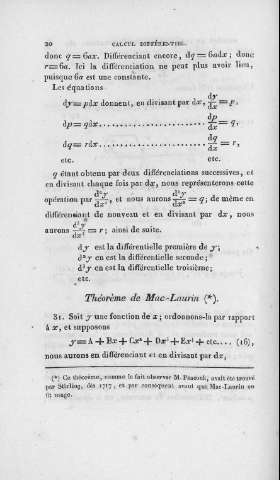 20 CALCUL DIFFÉRENTIEL.
donc q = 6ax. Différenciant encore, dq = 6adx; donc
r = 6a. Ici la différenciation ne peut plus avoir lieu,
puisque 6a est une constante.
Les équations
dy = pdx donnent, en divisant par dx, dy/dx = p,
dp = qdx........................ dp/dx = q,
dq = rdx........................ dq/dx = r,
etc. etc.
q étant obtenu par deux différenciations successives, et
en divisant chaque fois par dx, nous représenterons cette
opération par d²y/dx², et nous aurons d²y/dx² = q; de même en
différenciant de nouveau et en divisant par dx, nous
aurons d³y/dx³ = r; ainsi de suite.
dy est la différentielle première de y;
d²y en est la différentielle seconde;
d³y en est la différentielle troisième;
etc.
Théorème de Mac-Laurin (*).
31. Soit y une fonction de x; ordonnons-la par rapport
à x, et supposons
y = A + Bx + Cx² + Dx³ + Ex⁴ + etc.... (16),
nous aurons en différenciant et en divisant par dx,
(*) Ce théorème, comme le fait observer M. Peacock, avait été trouvé
par Stirling, dès 1717, et par conséquent avant que Mac-Laurin en
fît usage.